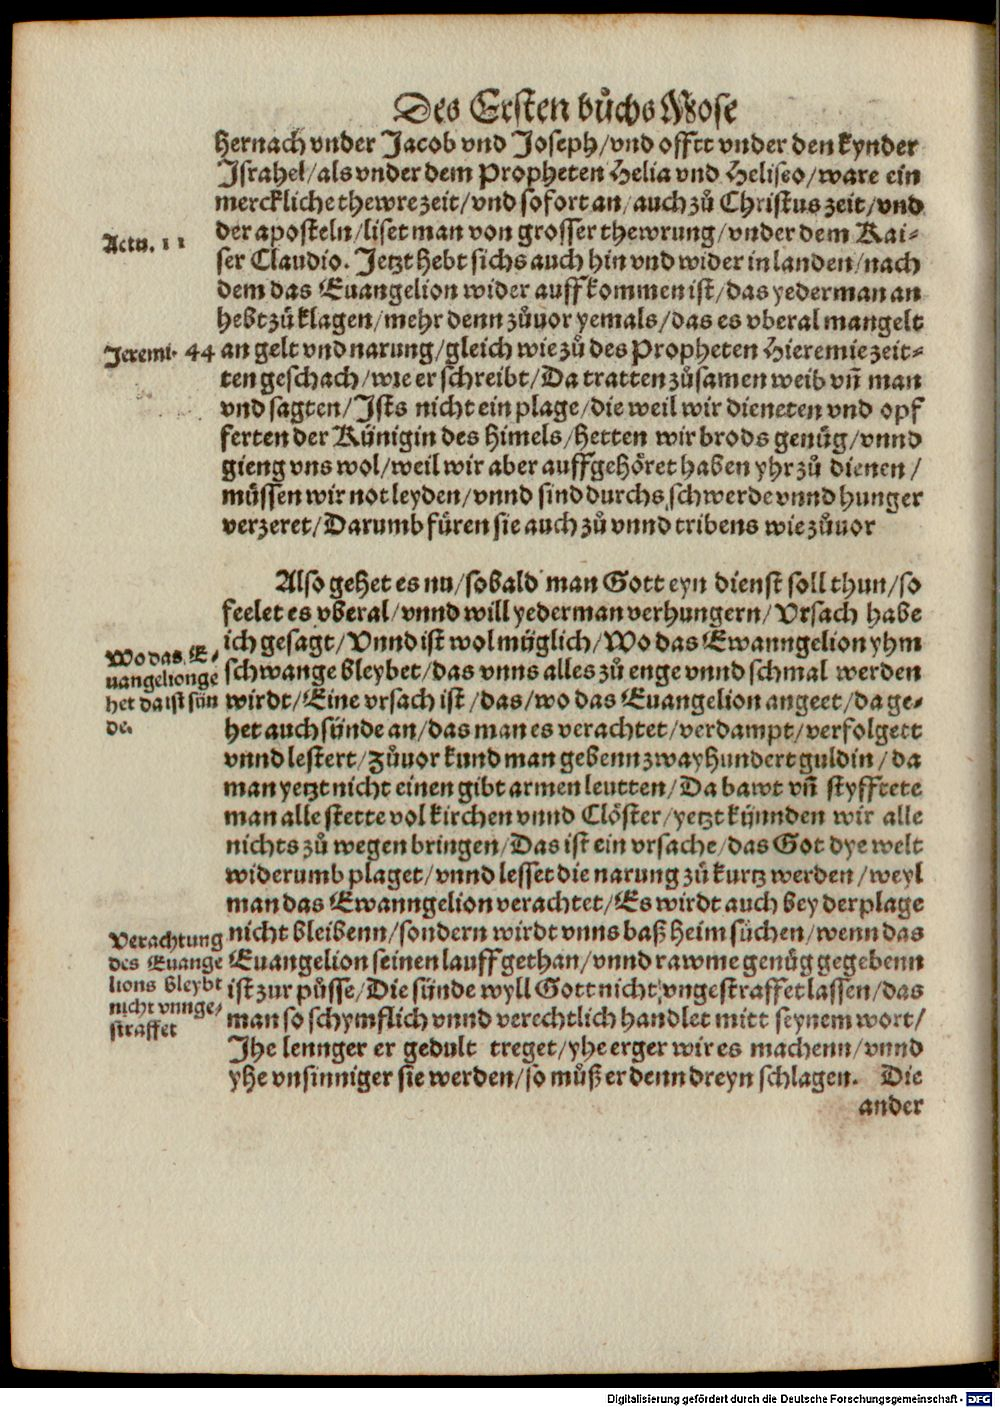 Des Ersten bůchs Mose
hernach vnder Jacob vnd Joseph/vnd offtt vnder den kynder
Israhel/als vnder dem Propheten Helia vnd Heliseo/ware ein
merckliche thewre zeit/vnd so fort an/auch zů Christus zeit/vnd
der aposteln/liset man von grosser thewrung/vnder dem Kai-
Actu. 11
ser Claudio. Jetzt hebt sichs auch hin vnd wider in landen/nach
dem das Euangelion wider auff kommen ist/das yederman an
hebt zů klagen/mehr denn zůuor yemals/das es vberal mangelt
Jeremi. 44
an gelt vnd narung/gleich wie zů des Propheten Hieremie zeit-
ten geschach/wie er schreibt/Da tratten zůsamen weib vñ man
vnd sagten/Ists nicht ein plage/die weil wir dieneten vnd opf
ferten der Künigin des himels/hetten wir brods genůg/vnnd
gieng vns wol/weil wir aber auffgehöret haben yhr zů dienen/
müssen wir not leyden/vnnd sind durchs schwerde vnnd hunger
verzeret/Darumb füren sie auch zů vnnd tribens wie zůuor
Also gehet es nu/sobald man Gott eyn dienst soll thun/so
feelet es vberal/vnnd will yederman verhungern/Vrsach habe
ich gesagt/Vnnd ist wol müglich/Wo das Ewanngelion yhm
Wo das E-
uangelion ge
het da ist sün
de.
schwange bleybet/das vnns alles zů enge vnnd schmal werden
wirdt/Eine vrsach ist/das/wo das Euangelion angeet/da ge-
het auch sünde an/das man es verachtet/verdampt/verfolgett
vnnd lestert/Zůuor kund man gebenn zwayhundert guldin/da
man yetzt nicht einen gibt armen leutten/Da bawt vñ styfftete
man alle stette vol kirchen vnnd Clöster/yetzt künnden wir alle
nichts zů wegen bringen/Das ist ein vrsache/das Got dye welt
widerumb plaget/vnnd lesset die narung zů kurtz werden/weyl
man das Ewanngelion verachtet/Es wirdt auch bey der plage
Verachtung
des Euange
lions bleybt
nicht vnnge-
straffet
nicht bleibenn/sondern wirdt vnns baß heim süchen/wenn das
Euangelion seinen lauff gethan/vnnd rawme genůg gegebenn
ist zur půsse/Die sünde wyll Gott nicht vngestraffet lassen/das
man so schymflich vnnd verechtlich handlet mitt seynem wort/
Ihe lennger er gedult treget/yhe erger wir es machenn/vnnd
yhe vnsinniger sie werden/so můß er denn dreyn schlagen. Die
ander
Digitalisierung gefördert durch die Deutsche Forschungsgemeinschaft - DFG